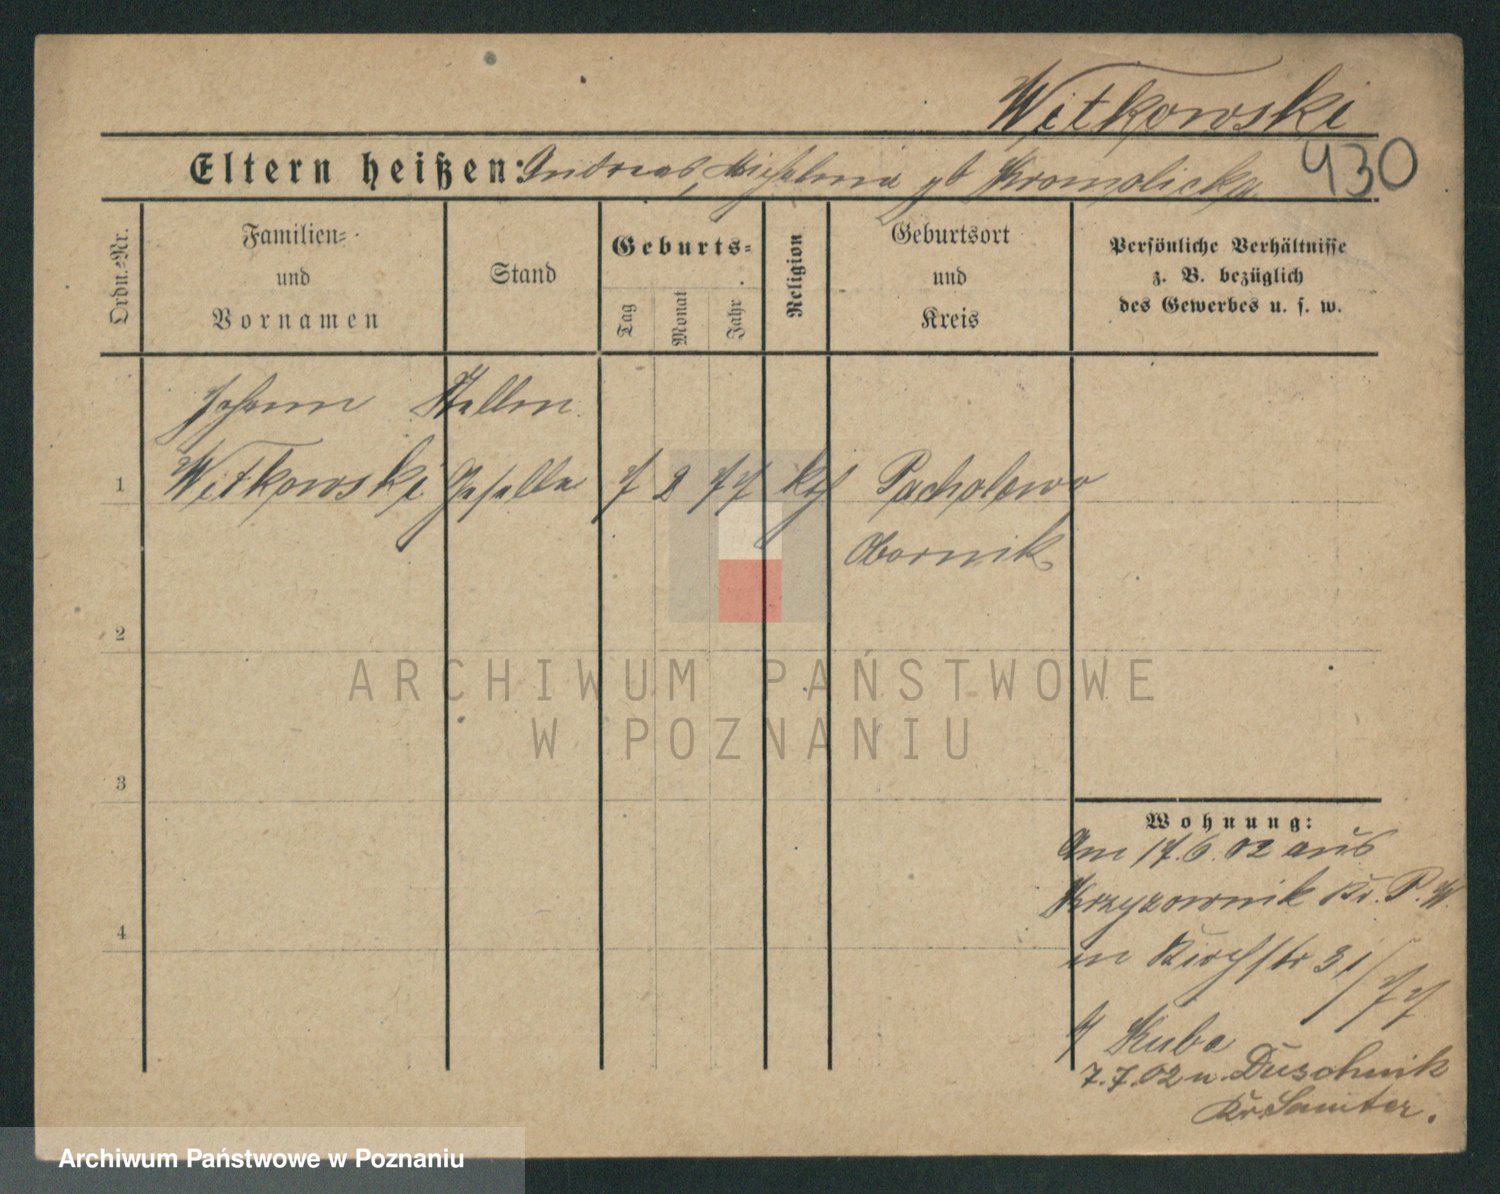 Witkowski
Eltern heißen: Andreas, Michalina gb Kromolicka 430
Ordn.-Nr.
Familien-
und
Vornamen
Stand
Geburts-
Tag
Monat
Jahr
Religion
Geburtsort
und
Kreis
Persönliche Verhältnisse
z. B. bezüglich
des Gewerbes u. s. w.
Johann
1 Witkowski Geselle 7 2 77 kth Pacholewo
Obornik
2
3
4
Wohnung:
Am 17.6.02 aus
Krzyzownik Kr. P. W.
in Kirchstr 31/77
Kuba
7.7.02 n. Duschnik
Kr Samter.
ARCHIWUM PAŃSTWOWE
W POZNANIU
Archiwum Państwowe w Poznaniu